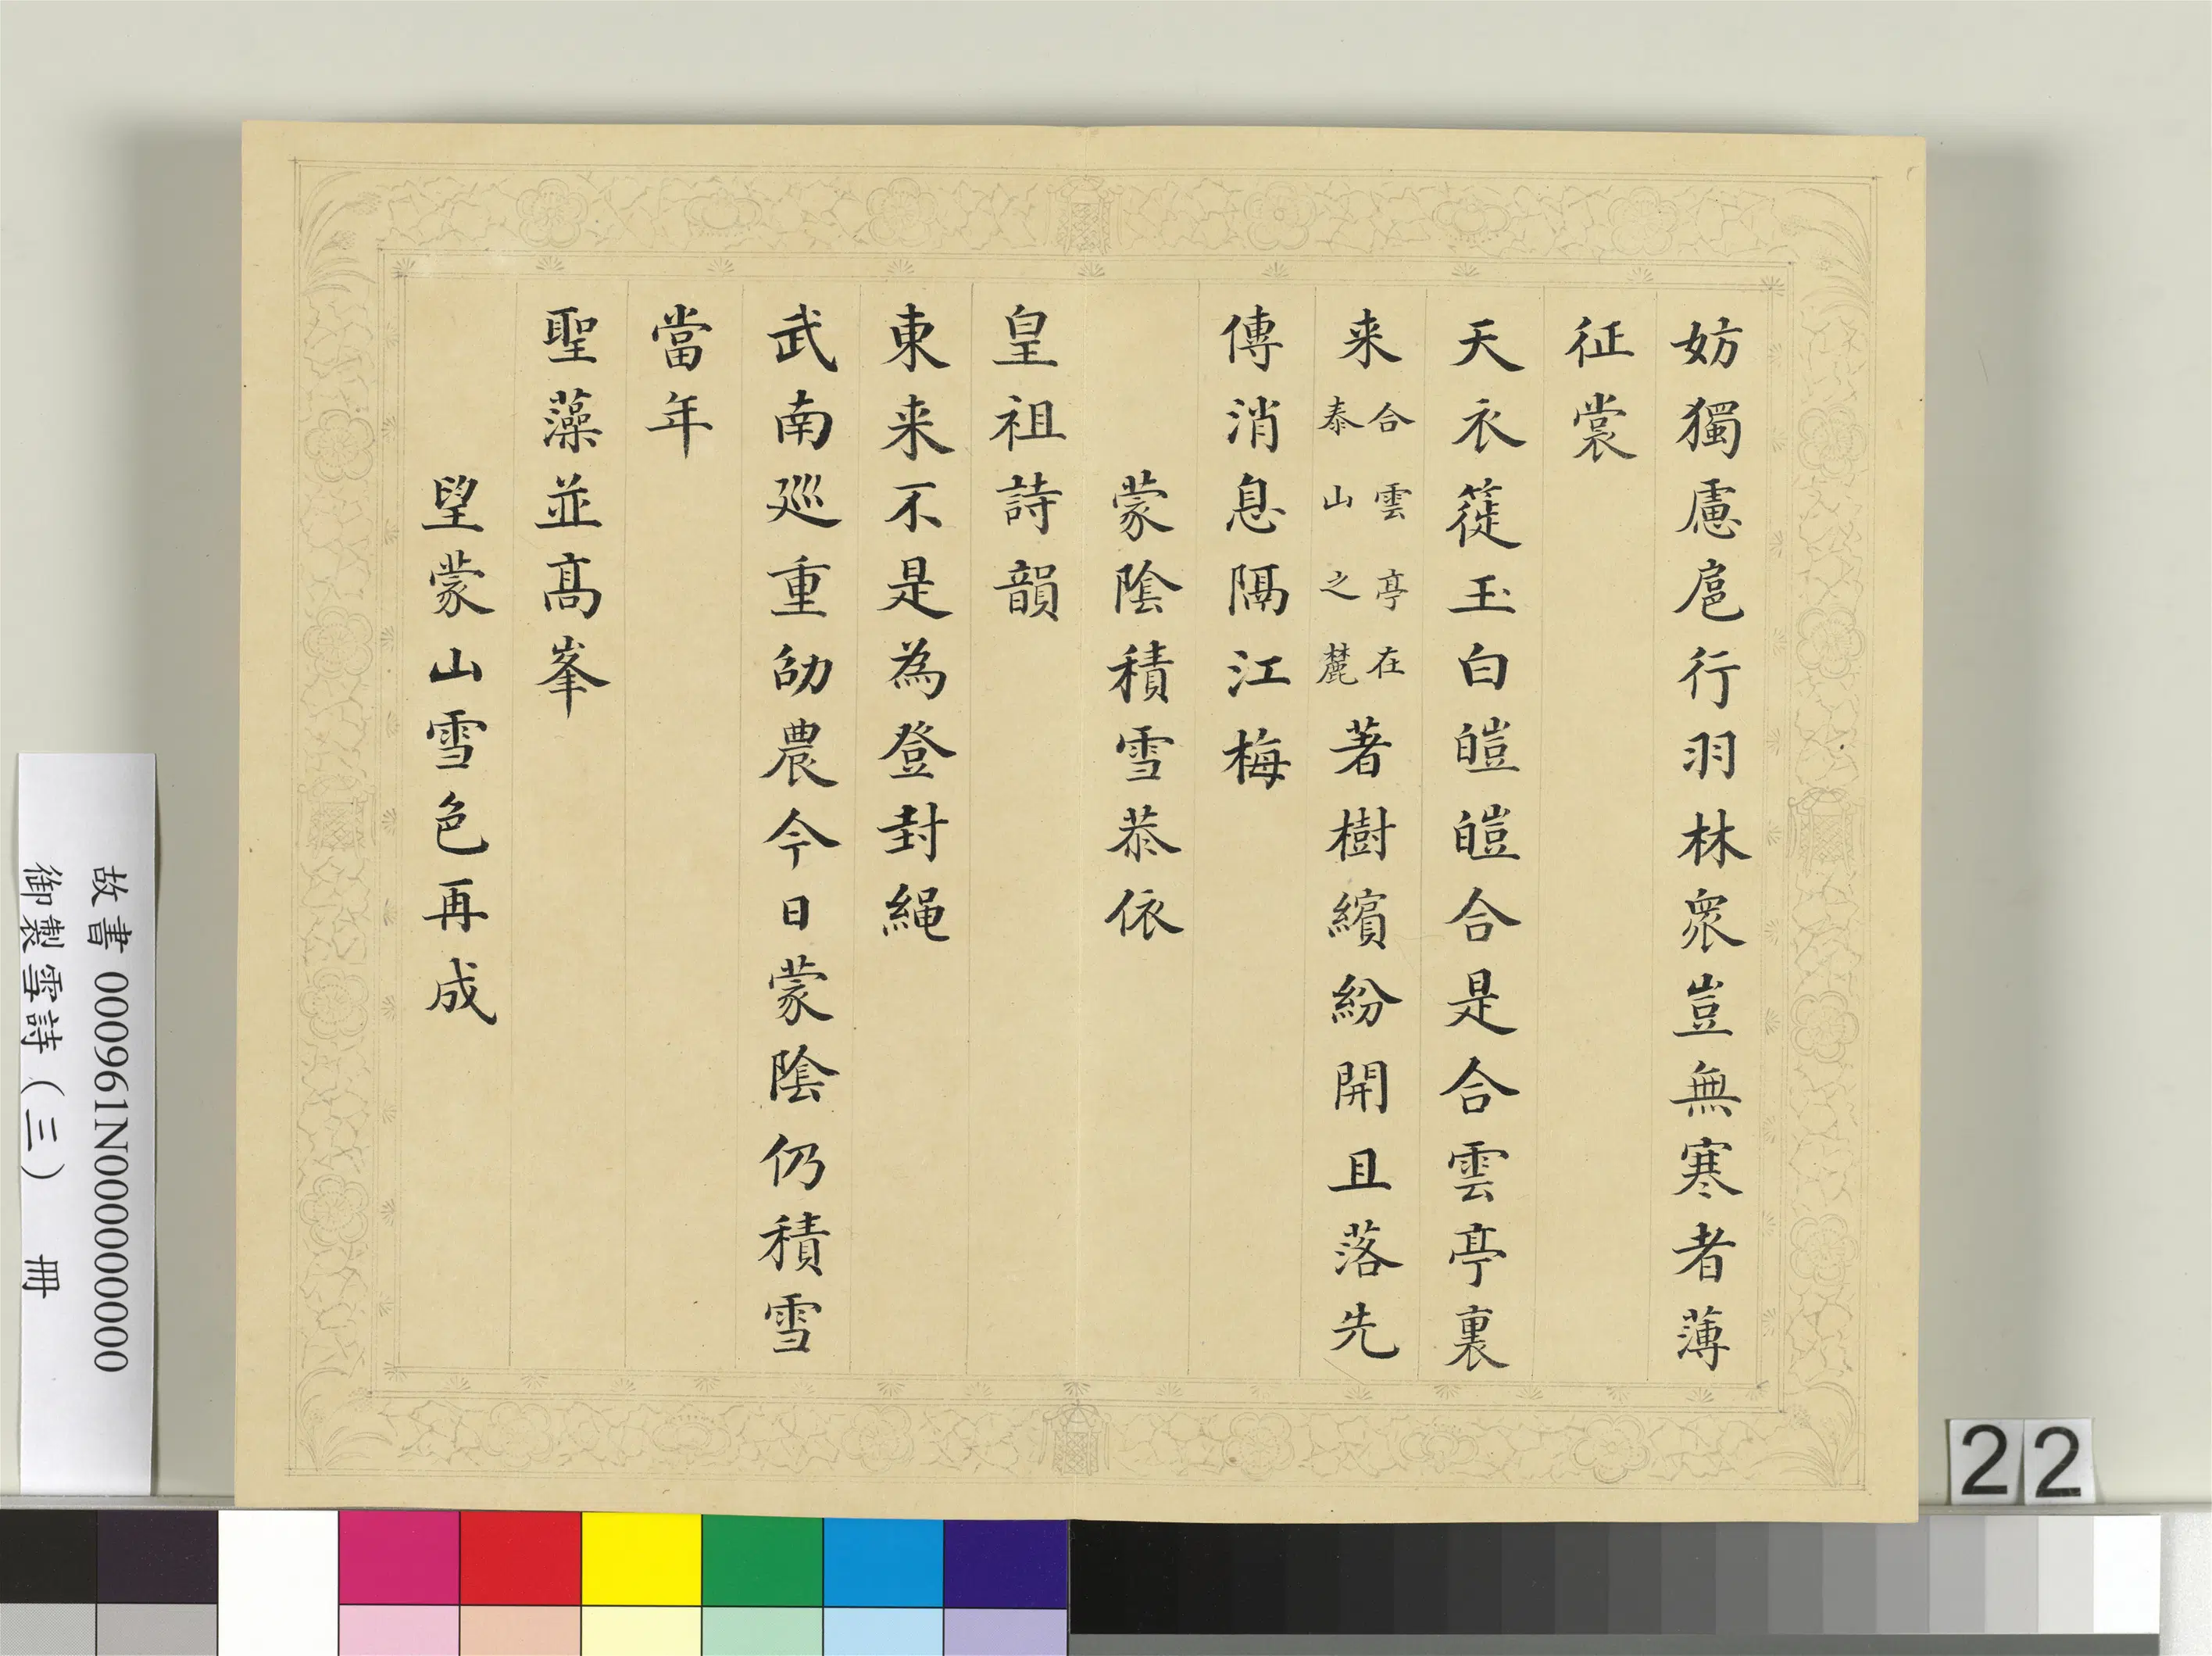 妨獨慮扈行羽林衆豈無寒者薄
征裳
天衣簁玉白皚皚合是合雲亭裏
来合雲亭在泰山之麓著樹繽紛開且落先
傳消息隔江梅
蒙陰積雪恭依
皇祖詩韻
東来不是為登封繩
武南廵重劭農今日蒙陰仍積雪
當年
聖藻並髙峯
望蒙山雪色再成
故書 000961N000000000
御製雪詩(三) 冊
22